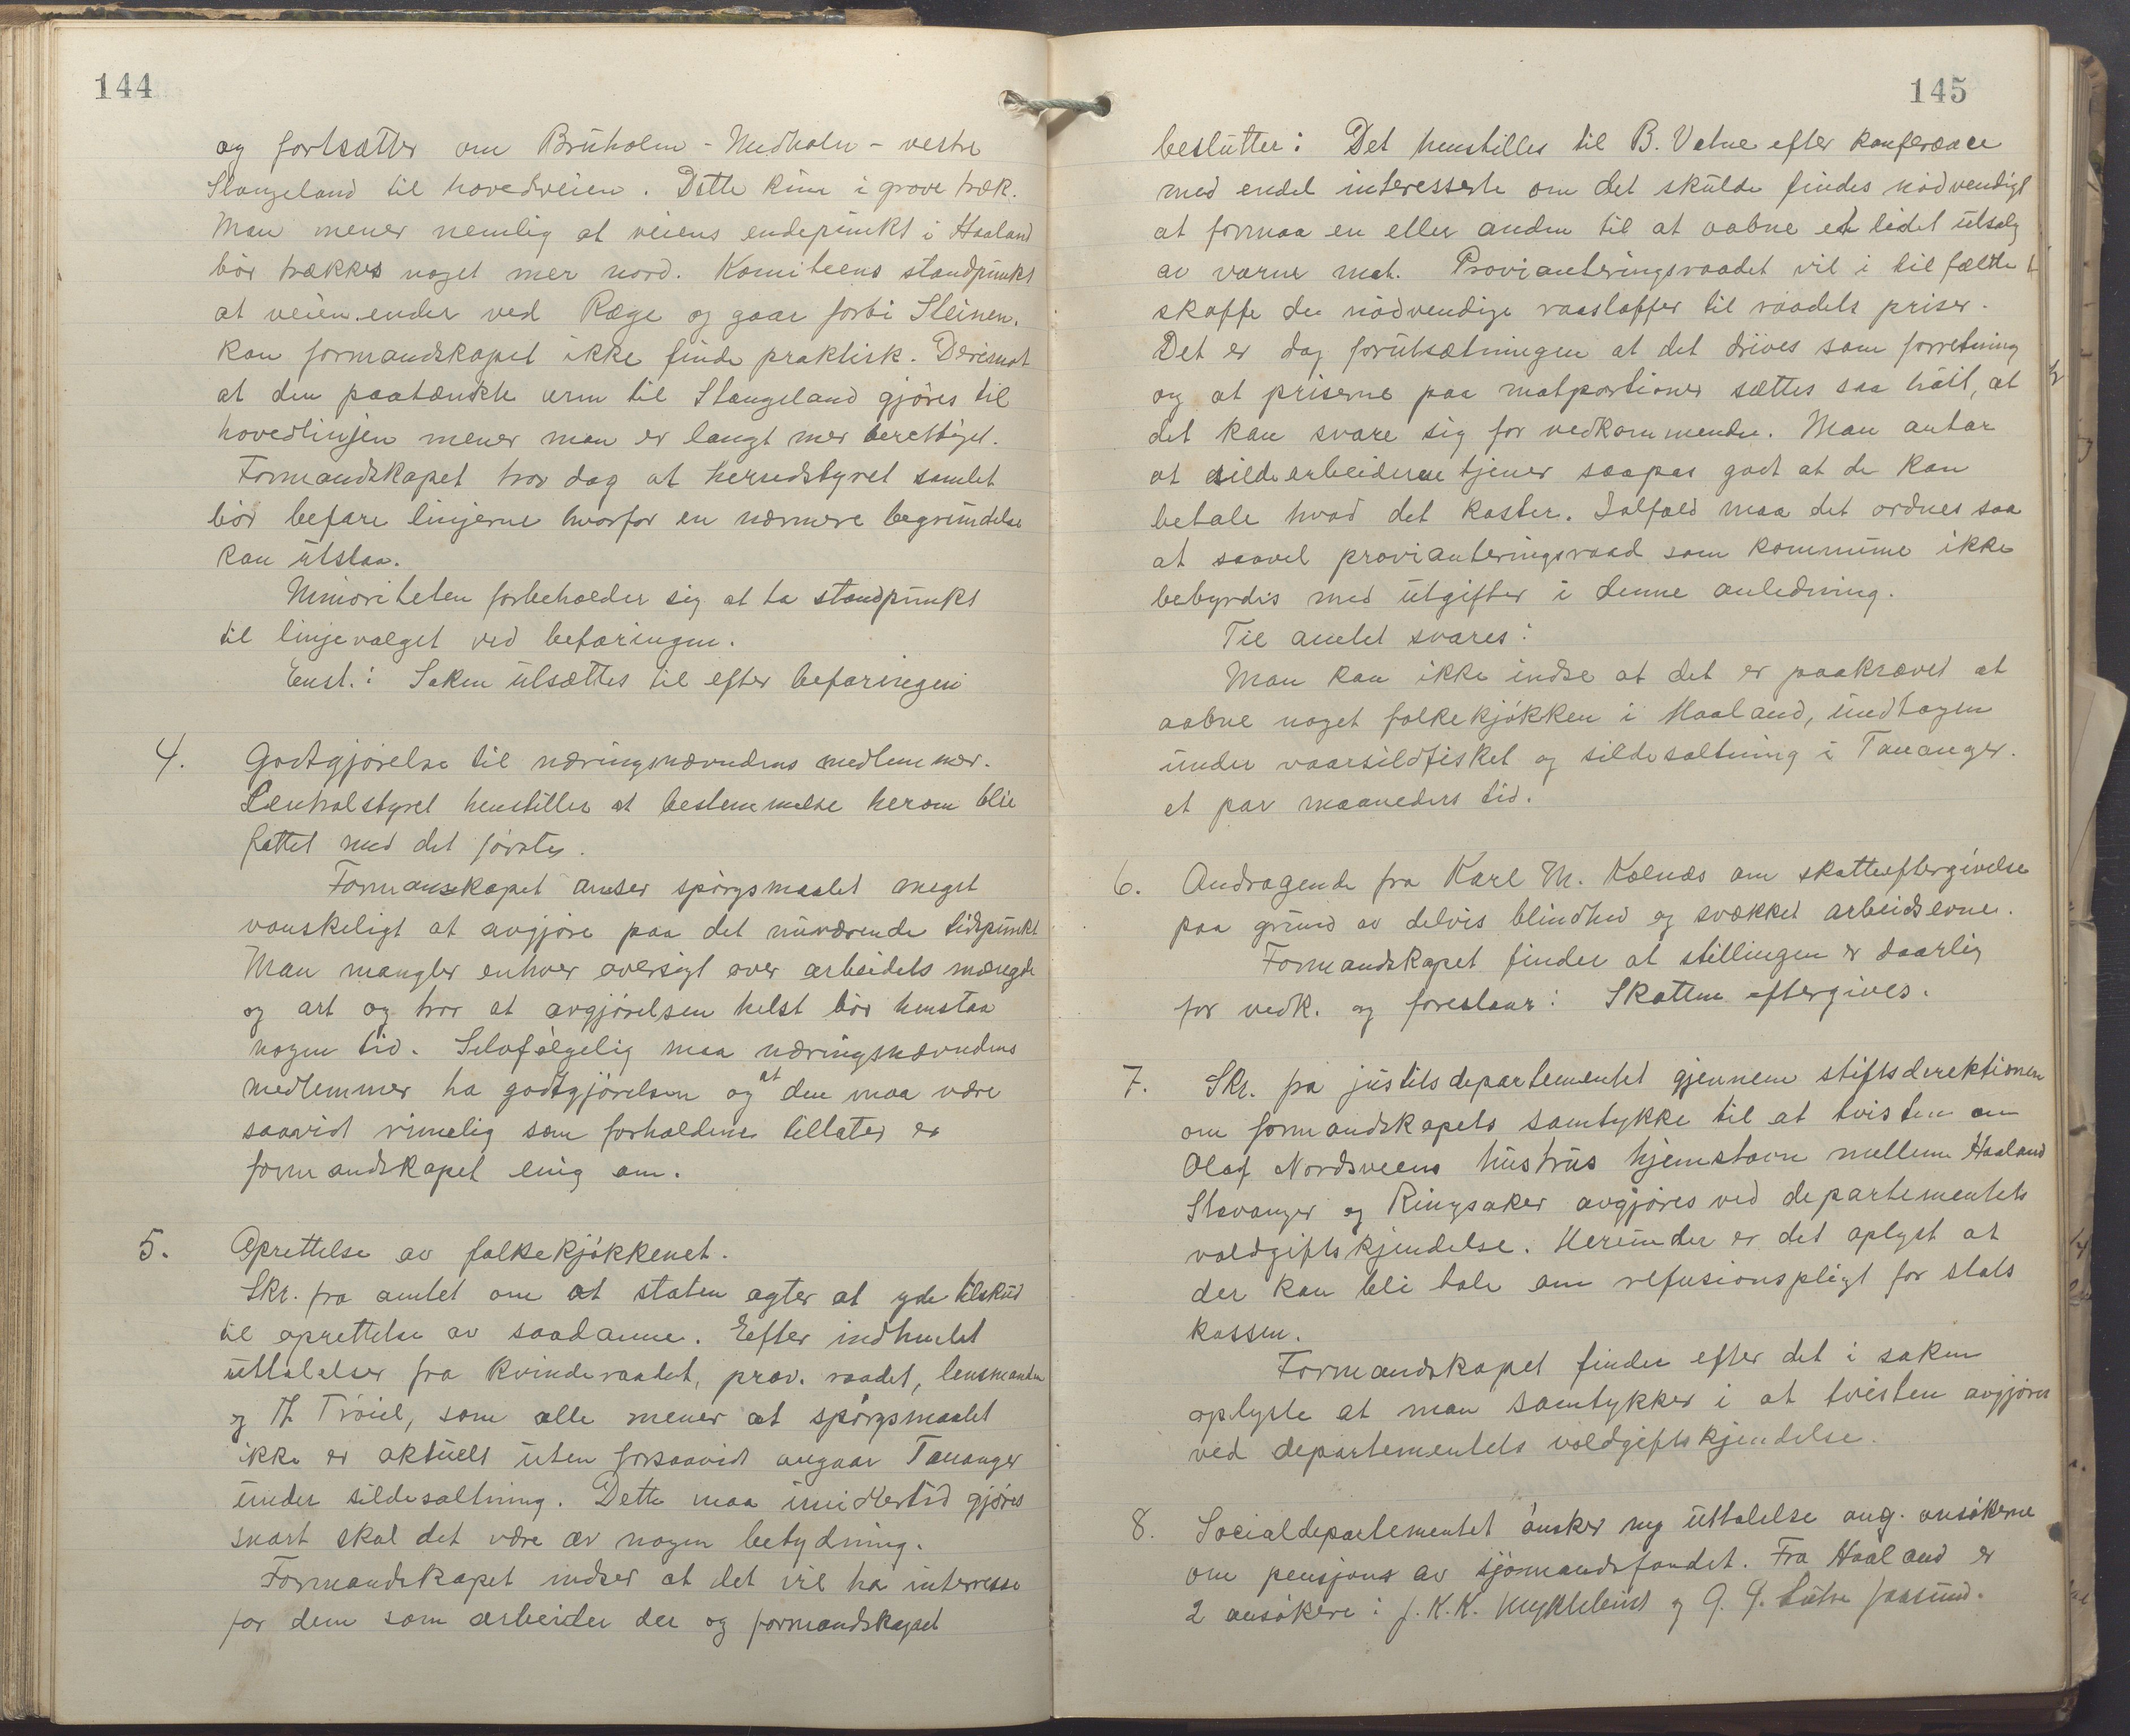 144
og fortsætter om Bruholm - Nedholm - vestre
Stangeland til hovedveien. Dette kun i grove træk.
Man mener nemlig at veiens endepunkt i Haaland
bør trækkes noget mer nord. Komiteens standpunkt
at veien ender ved Ræge og gaar forbi Steinen.
kan formandskapet ikke finde praktisk. Derimot
at den paatænkte arm til Stangeland gjøres til
hovedlinjen mener man er langt mer berettiget.
Formandskapet tror dog at herredstyret samlet
bør befare linjerne hvorfor en nærmere begrundelse
kan utstaa.
Minoriteten forbeholder sig at ta standpunkt
til linjevalget ved befaringen.
Enst.: Saken utsættes til efter befaringen
4. Godtgjørelse til næringsnævndens medlemmer.
Centralstyret henstiller at bestemmelse herom blir
fattet med det første.
Formanskapet anser spørgsmaalet meget
vanskeligt at avgjøre paa det nuværende tidspunkt
Man mangler enhver oversigt over arbeidets mængde
og art og tror at avgjørelsen helst bør henstaa
nogen tid. Selvfølgelig maa næringsnævndens
medlemmer ha godtgjørelsen og at den maa være
saavidt rimelig som forholdene tillater er
formandskapet enig om.
5. Oprettelse av folkekjøkkenet.
Skr. fra amtet om at staten agter at yde tilskud
til oprettelse av saadanne. Efter indhentet
uttalelser fra kvinderaadet, prov. raadet, lensmanden
og Th. Trøiel, som alle mener at spørgsmaalet
ikke er aktuelt uten forsaavidt angaar Tananger
under sildesaltning. Dette maa imidlertid gjøres
snart skal det være av nogen betydning.
Formandskapet indser at det vil ha interresse
for dem som arbeider der og formandskapet
145
beslutter: Det henstilles til B. Vatne efter konferance
med endel interesserte om det skulde findes nødvendigt
at formaa en eller anden til at aabne et lidet utsalg
av varm mat. Provianteringsraadet vil i tilfælde
skaffe de nødvendige raastoffer til raadets priser.
Det er dog forutsætningen at det drives som forretning
og at priserne paa matportioner sættes saa høit, at
det kan svare sig for vedkommende. Man antar
at sildearbeiderne tjener saapas godt at de kan
betale hvad det koster. Ialfald maa det ordnes saa
at saavel provianteringsraad som kommune ikke
bebyrdes med utgifter i denne anledning.
Til amtet svares:
Man kan ikke indse at det er paakrævet at
aabne noget folkekjøkken i Haaland, undtagen
under vaarsildfisket og sildesaltning i Tananger.
et par maaneders tid.
6. Andragende fra Karl M. Kolnæs om skatteeftergivelse
paa grund av delvis blindhed og svækket arbeidsevne.
Formandskapet finder at stillingen er daarlig
for vedk. og foreslaar: Skatten eftergives.
7. Skr. fra justitsdepartementet gjennem stiftsdirektionen
om formandskapets samtykke til at tvisten om
Olaf Nordsveens hustrus hjemstavn mellem Haaland
Stavanger og Ringsaker avgjøres ved departementets
voldgiftskjendelse. Herunder er det oplyst at
der kan bli tale om refusionspligt for stats
kassen.
Formandskapet finder efter det i saken
oplyste at man samtykker i at tvisten avgjøres
ved departementets voldgiftskjendelse.
8. Socialdepartementet ønsker ny uttalelse ang. ansøkerne
om pensjons av sjømandsfondet. Fra Haaland er
2 ansøkere: J. K. K. Myklebust og G. G. Lutre Jaasund.